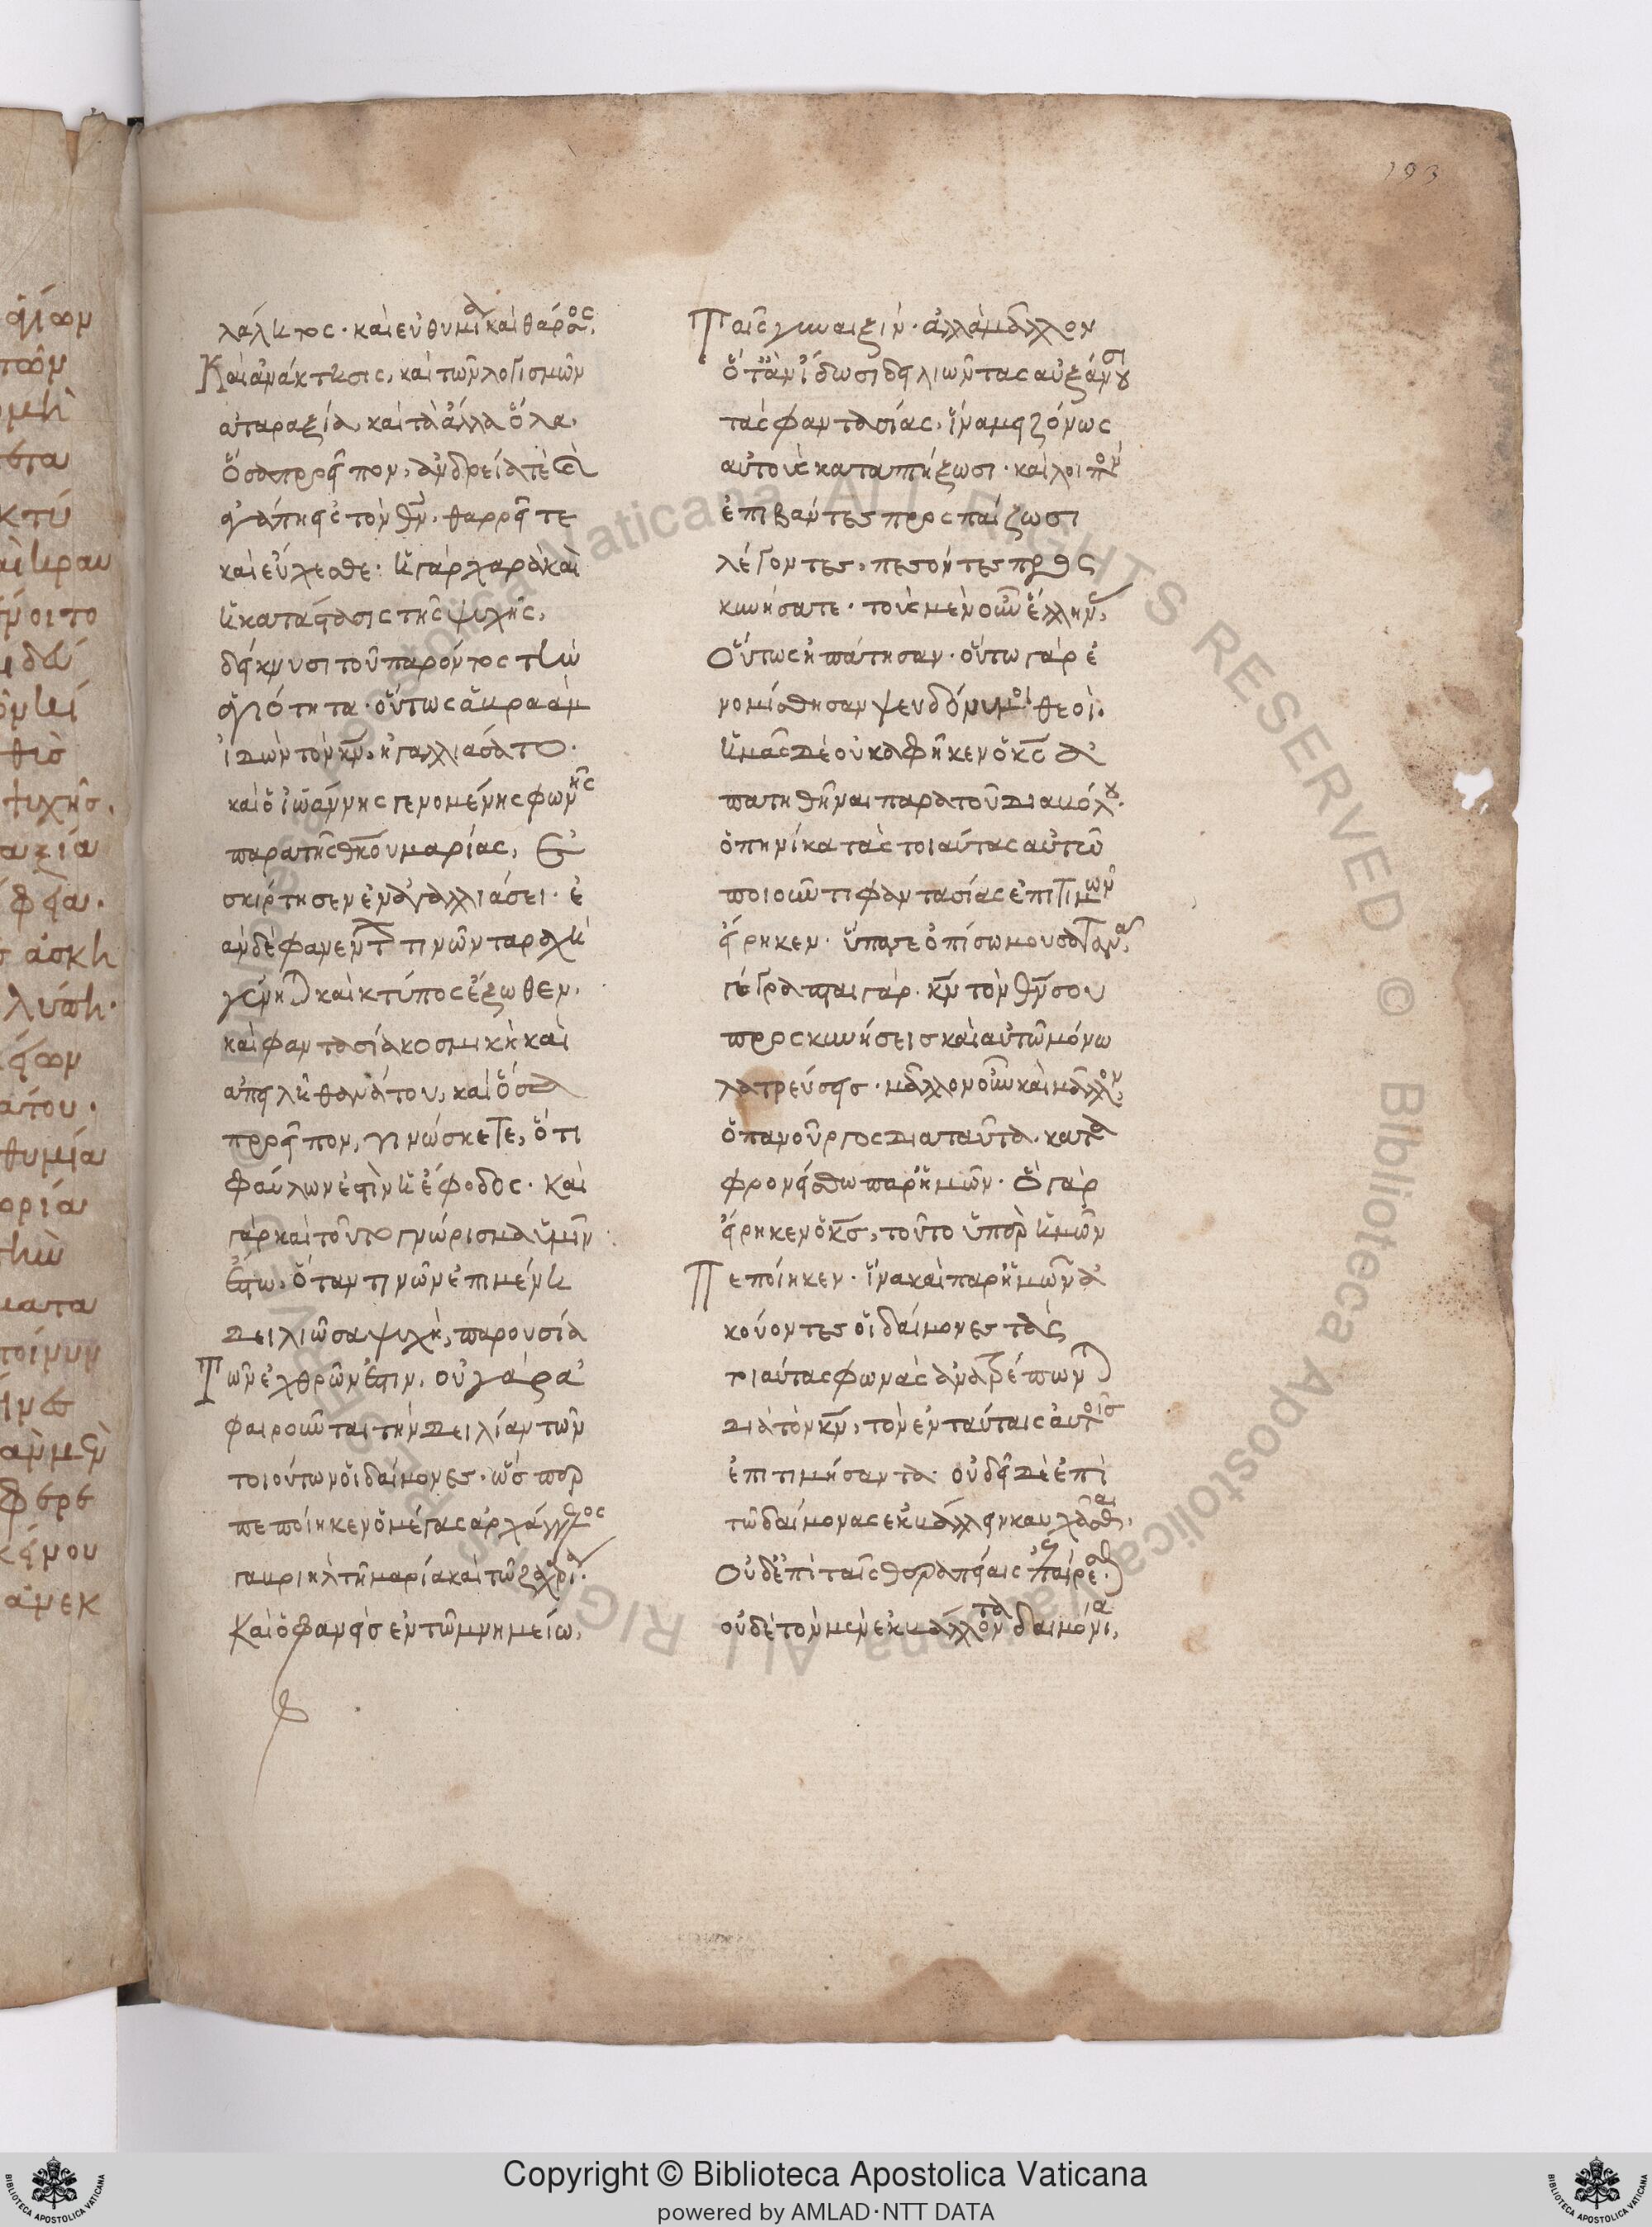 193
λάλητος· καὶ εὐθυμία καὶ θάρσος,
Καὶ ἀνάκτησις, καὶ τῶν λογισμῶν
ἀταραξία, καὶ τὰ ἄλλα ὅλα,
ὅσα προεῖπον, ἀνδρεία τὲ καὶ
ἀγάπη εἰς τὸν θν̄. θαρρεῖτε
καὶ εὔχεσθε· ἡ γὰρ χαρὰ καὶ
ἡ κατάστασις τῆς ψυχῆς,
δείκνυσι τοῦ παρόντος τὴν
ἁγιότητα· οὕτως ἄβραὰμ
ἰδὼν τὸν κν̄, ἠγαλλιάσατο·
καὶ ὁ ἰωάννης γενομένης φωνῆς
παρὰ τῆς θκοῦ μαρίας, ἐ
σκίρτησεν ἐν ἀγαλλιάσει· ἐ
ὰν δὲ φανέντων τινῶν ταραχὴ
γένηται καὶ κτύπος ἔξωθεν,
καὶ φαντασία κοσμικὴ καὶ
ἀπειλὴ θανάτου, καὶ ὅσα
προεῖπον, γινώσκετε, ὅτι
φαύλων ἐστὶν ἡ ἔφοδος· καὶ
γὰρ καὶ τοῦτο γνώρισμα ὑμῖν
ἔστω. ὅταν τινῶν ἐπιμένη
δειλιῶσα ψυχὴ, παρουσία
Τῶν ἐχθρῶν ἐστιν, οὐ γὰρ ἀ
φαιροῦνται τὴν δειλίαν τῶν
τοιούτων οἱ δαίμονες· ὥσπερ
πεποίηκεν ὁ μέγας ἀρχάγγελος
γαβριὴλ τῆ μαρία καὶ τῶ ζαχαρία·
Καὶ ὁ φανεὶς ἐν τῶ μνημείω,
Ταῖς γυναιξίν· ἀλλὰ μᾶλλον
ὅταν ἴδωσι δειλιῶντας αὐξάνουσι
τὰς φαντασίας, ἵνα μειζόνως
αὐτοὺς καταπτήξωσι· καὶ λοιπὸν
ἐπιβάντες προσπαίζωσι
λέγοντες, πεσόντες προς
κυνήσατε· τοὺς μὲν οὖν ἕλληνας,
Οὕτως ἠπάτησαν· οὕτω γὰρ ἐ
νομίσθησαν ψευδόνυμοι θεοὶ.
ἡμᾶς δὲ οὐκ ἀφῆκεν ὁ κς̄ ἀ
πατηθῆναι παρὰ τοῦ διαβόλου·
ὁπηνίκα τὰς τοιαύτας αὐτῶ
ποιοῦντι φαντασίας ἐπιτιμῶν
εἴρηκεν· ὕπαγε ὀπίσω μου σατανᾶ,
γέγραπται γάρ· κν̄ τὸν θν̄ σου
προσκυνήσεις καὶ αὐτῶ μόνω
λατρεύσεις· μᾶλλον οὖν καὶ μᾶλλον,
ὁ πανοῦργος διὰ ταῦτα· κατα
φρονείσθω παρ' ἡμῶν· ὃ γὰρ
εἴρηκεν ὁ κς̄, τοῦτο ὑπὲρ ἡμῶν
Πεποίηκεν· ἵνα καὶ παρ' ἡμῶν ἀ
κούοντες οἱ δαίμονες τὰς
τοιαύτας φωνὰς ἀνατρέπωνται
διὰ τὸν κν̄, τὸν ἐν ταύταις αὐτοῖς
ἐπιτιμήσαντα· οὐ δεῖ δὲ ἐπὶ
τῶ δαίμονας ἐκβάλλειν καυχᾶσθαι,
Οὐδ' ἐπὶ ταῖς θεραπείαις ἐπαίρεσθαι·
οὐδὲ τὸν μὲν ἐκβάλλοντα δαιμόνια,
Copyright © Biblioteca Apostolica Vaticana
powered by AMLAD·NTT DATA